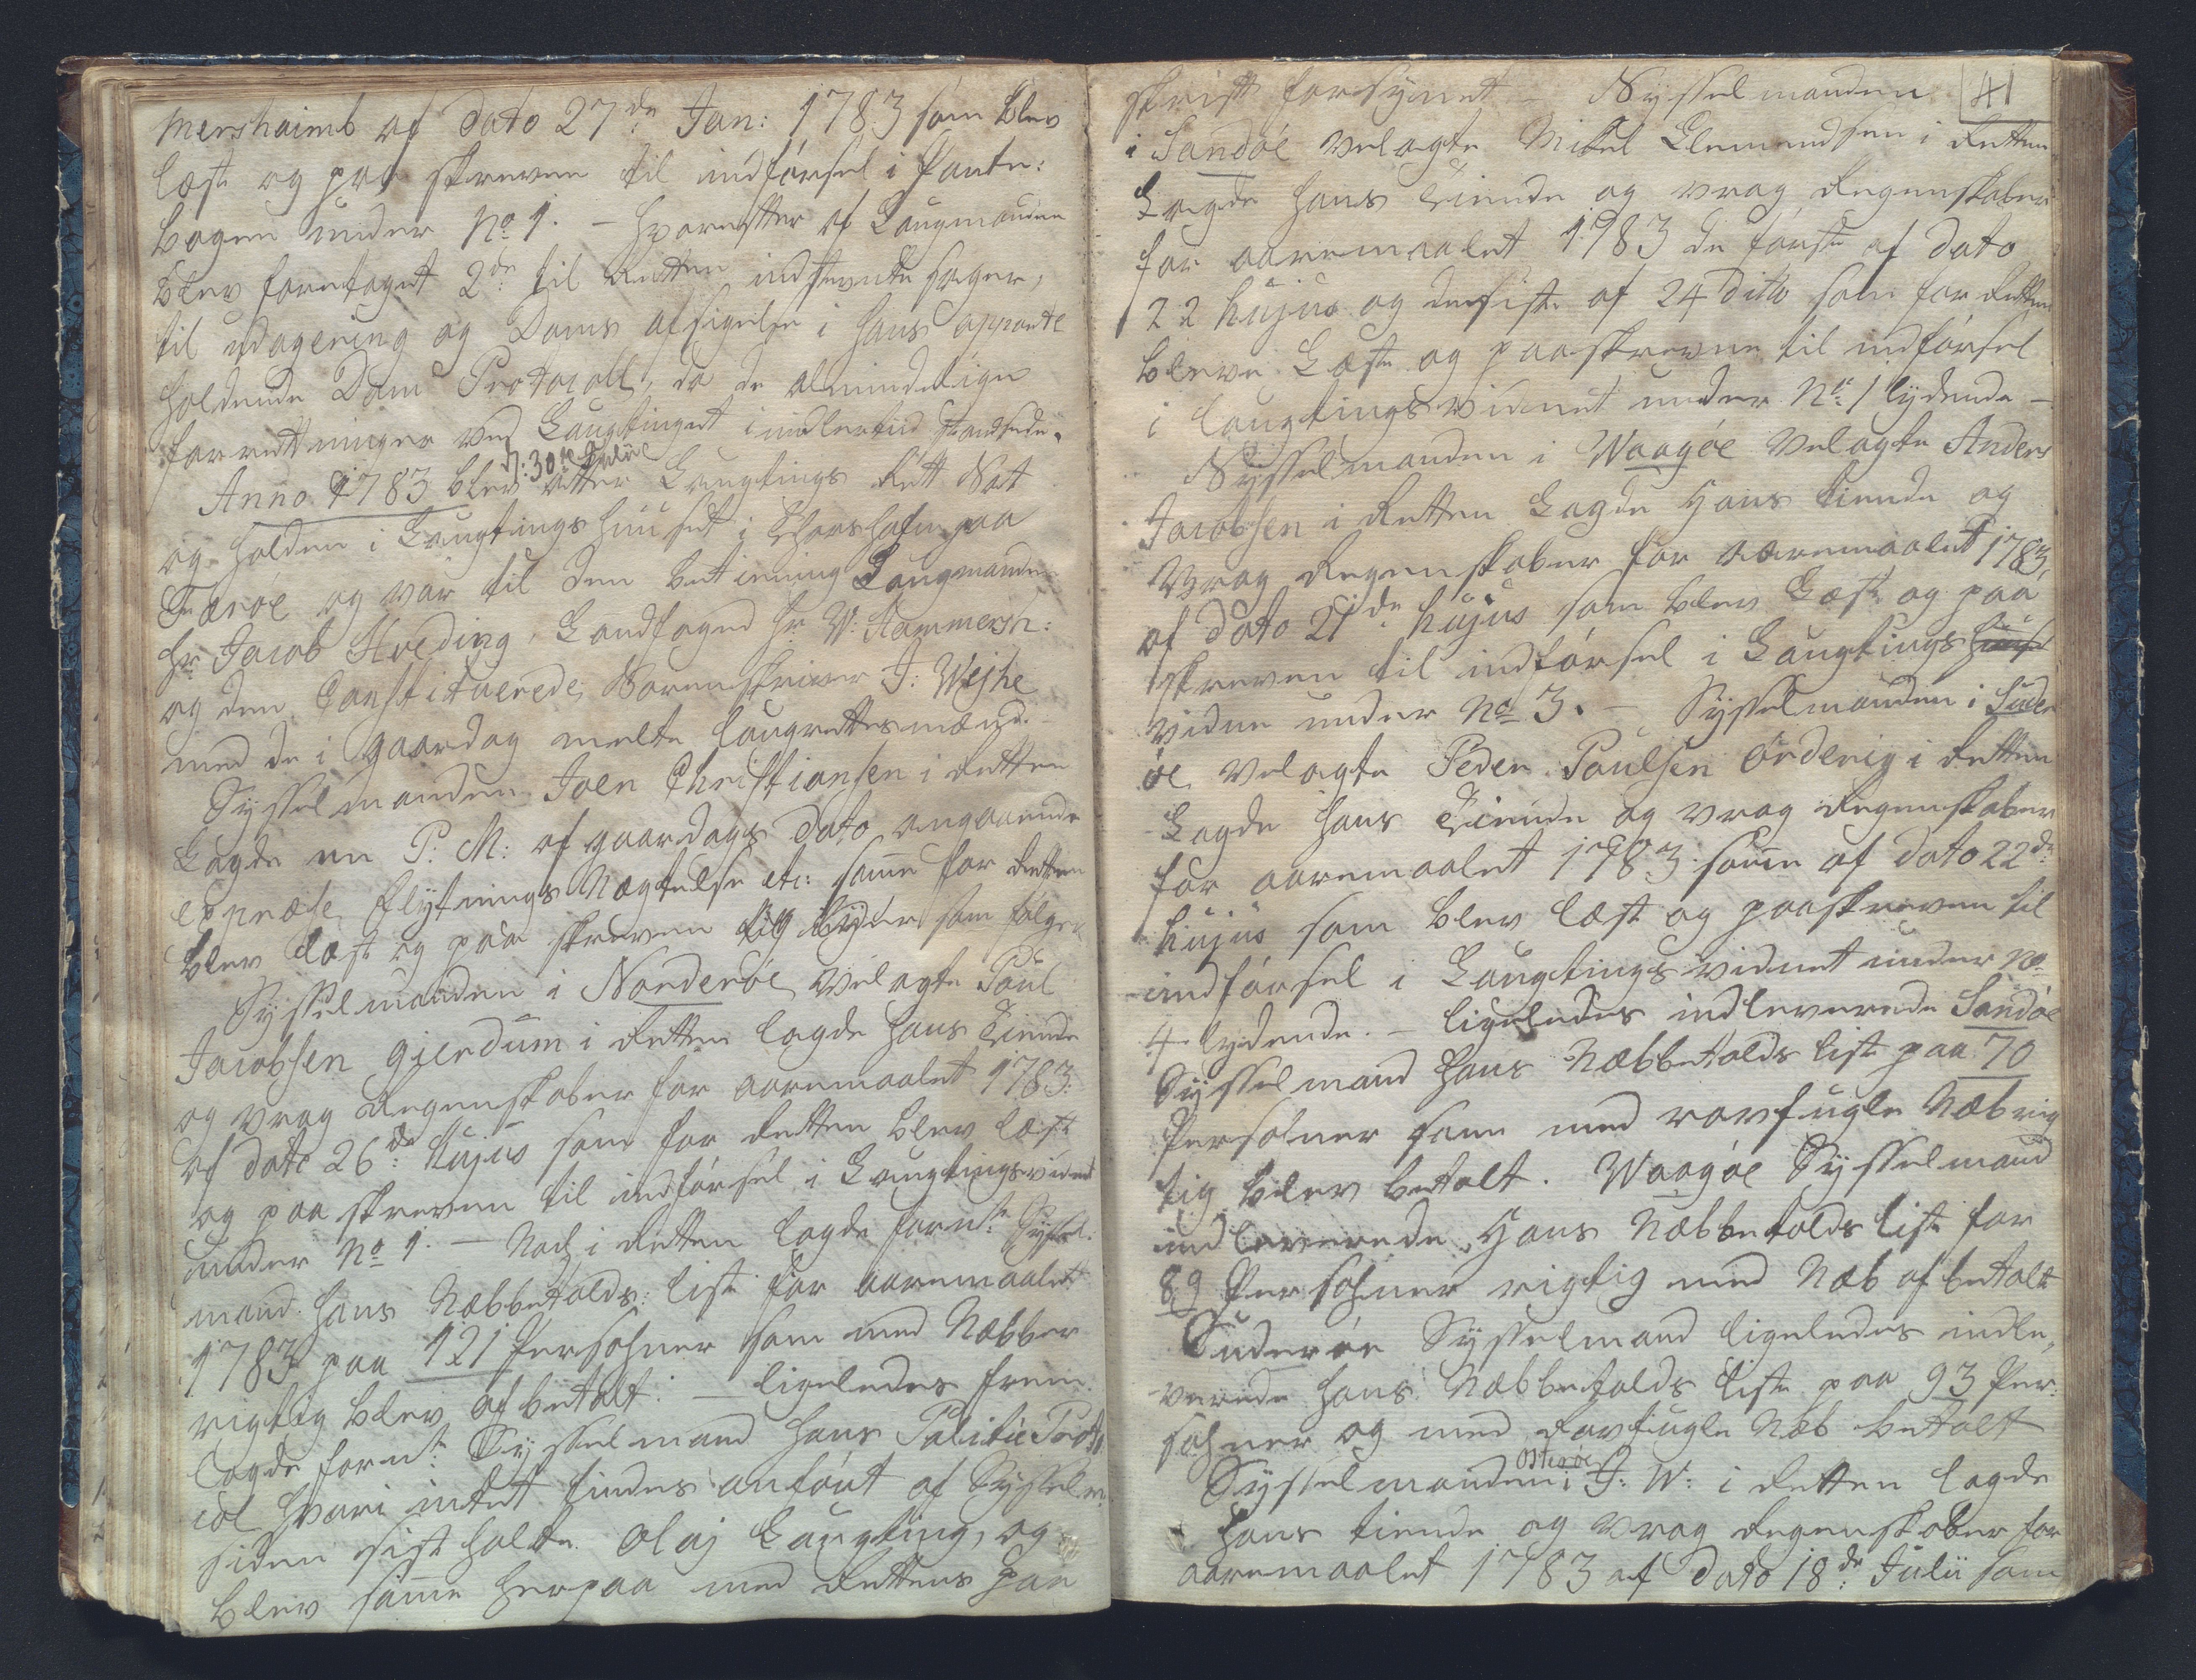 mershaimb af dato 27de Jan: 1783 som blev
læst og paa skreven til indførsel i Pante:
bogen under No 1. – hvorefter af Laugmanden
blev foretaget 2de til Retten indstevnte sager,
til udagering og Doms afsigelse i hans apparte
holdende Dom Protocoll, da de almindelige
forrettninger ved Laugtinget imidlertiid standsede.
Anno 1783 d: 30te Julii blev atter Laugtings Rett Sat
og holden i Laugtings huuset i Thorshafn paa
Færoe og var til den betiening Laugmanden
Hr Jacob Hveding, Landfoged Hr W: Hammersh:
og den Constituerede Sorenskriver J: Wejhe
med de i gaardag melte laugrettesmænd. –
Sysselmanden Joen Christiansen i Retten
Lagde en P: M: af gaardags dato angaaende
expresse flytnings Nægtelse etc: samme for Retten
blev læst og paa skreven og lyder som følger
Sysselmanden i Norderøe velagte Poul
Jacobsen gierdum i Retten lagde hans Tiende
og vrag Regenskaber for aaremaalet 1783:
af dato 26de hujus som for Retten blev læst
og paa skreven til indførsel i Laugtingsvidnet
under No 1. – Nock i Retten lagde fornte Syssel:
mand hans Næbbetolds: liste for aaremaalet
1783 paa 121 Persohner som med Næbber
rigtig blev af betalt: – ligeledes frem
lagde fornte Sysselmand hans Politie Proto
col hvori intet findes anført af Sysselm:
siden sist holdte Olaj Laugting, og
blev samme herpaa med Rettens paa
41
skrift forsynet – Sysselmanden
i Sandøe velagte Mikel Clemendsen i Retten
Lagde hans Tiende og vrag Regenskaber
for aaremaalet 1783 de første af dato
22 hujus og de siste af 24 dito som for Retten
bleve Læste og paaskrevne til indførsel
i laugtingsvidnet under No 1 lydende –
Sysselmanden i Waagøe velagte Anders
Jacobsen i Retten Lagde Hans tiende og
Vrag Regenskaber for aaremaalet 1783,
af dato 21de hujus som blev Læst og paa
skreven til indførsel i Laugtings huuse
vidne under No 3. – Sysselmanden i Suder
øe velagte Peder Poulsen Ørdevig i Retten
Lagde hans Tiende og vrag Regenskaber
for aaremaalet 1783 samme af dato 22de
hujus som blev læst og paaskreven til
indførsel i Laugtingsvidnet under No
4 lydende. – ligeledes indleverede Sandøe
Sysselmand hans Næbbetolds liste paa 70
Persohner som med ravfugle Næb rig
tig blev betalt. Waagøe Sysselmand
indleverede Hans Næbbetolds liste for
89 Persohner rigtig med Næb af betalt
Suderøe Sysselmand ligeledes indle,
verede hans Næbbetolds liste paa 93 Per:
sohner og med Ravfugle Næb betalt
Sysselmanden i Østerøe J: W: i Retten lagde
hans tiende og vrag Regenskaber for
aaremaalet 1783 af dato 18de Julii som